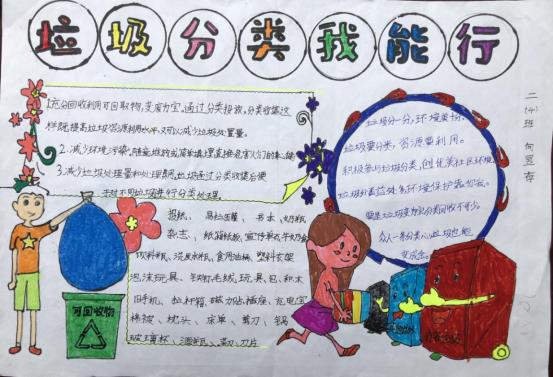 垃圾分类我能行
二(4)班
1.充分回收利用可回收物,变废为宝。通过分类投放,分类收集这
样既提高垃圾资源利用水平,又可以减少垃圾处置量。
2.减少环境污染。随意堆放或简单填埋直接危害人们的
3.减少垃圾处理量和处理费。垃圾通过分类收集后便
于对不同垃圾进行分类处理。
报纸、易拉罐、书本、奶瓶
杂志、纸箱纸板、宣传单或牛奶盒
饮料瓶、洗发水瓶、食用油桶、塑料衣架
泡沫玩具、玩具、包、积木
旧手机、拉杆箱、磁力贴插座、充电宝
棉被、枕头、床单、剪刀、锅
玻璃杯、酒瓶、刀片
可回收物
垃圾分一分,环境美十分。
垃圾要分类,资源要利用。
积极参与垃圾分类,创优美社区环境。
众人一条分类心,垃圾也能
变成金。